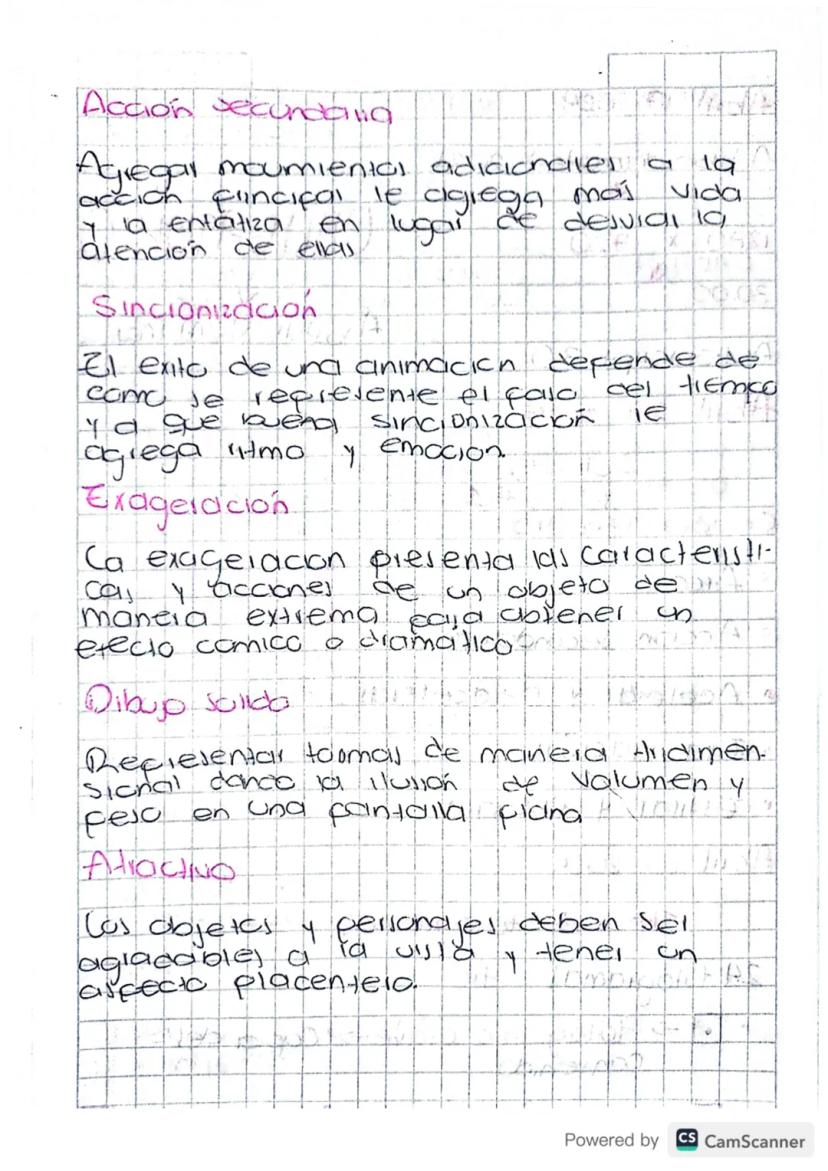 Acción secundaria
Agregar movimientos adicionales a la
acción principal le agrega más vida
y la enfatiza en lugar de desviar la
atención de ellas
Sincronización
El exito de una animación depende de
como se represente el paso del tiempo
ya que buena sincronización le
agrega ritmo y emoción.
Exageración
La exageración presenta las característi-
cas y acciones de un objeto de
manera extrema para obtener un
efecto comico o dramático
Dibujo solido
Representar toomas de manera tridimen-
sional dando la ilusión de volumen y
peso en una pantalla plana
Atractivo
Los objetos y personajes deben ser
agradables a la vista y tener un
aspecto placentero.
Powered by CS CamScanner